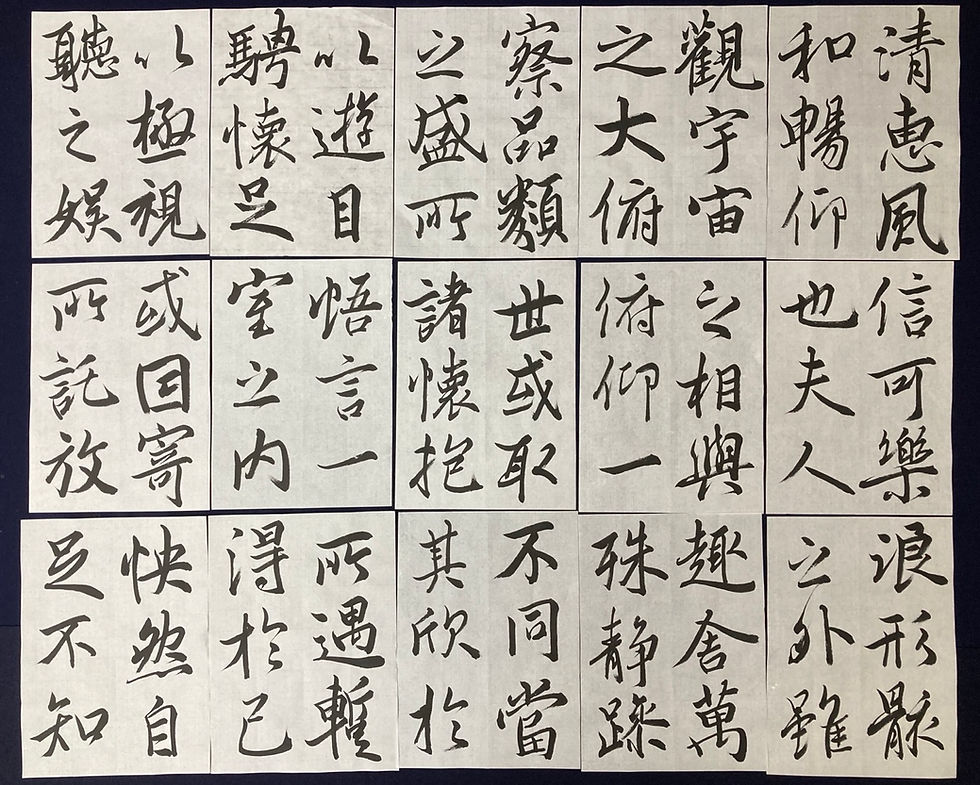 清恵風
和暢仰
觀宇宙
之大俯
察品類
之盛所
以遊目
騁懐足
以極視
聽之娯
信可樂
也夫人
之相與
俯仰一
世或取
諸懐抱
悟言一
室之内
或因寄
所託放
浪形骸
之外雖
趣舎萬
殊静躁
不同當
其欣於
所遇暫
得於己
怏然自
足不知